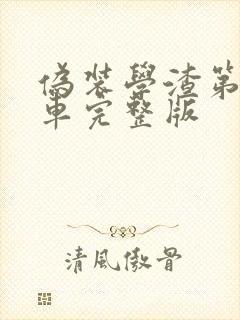 偽裝學渣第
車完整版
清風傲骨